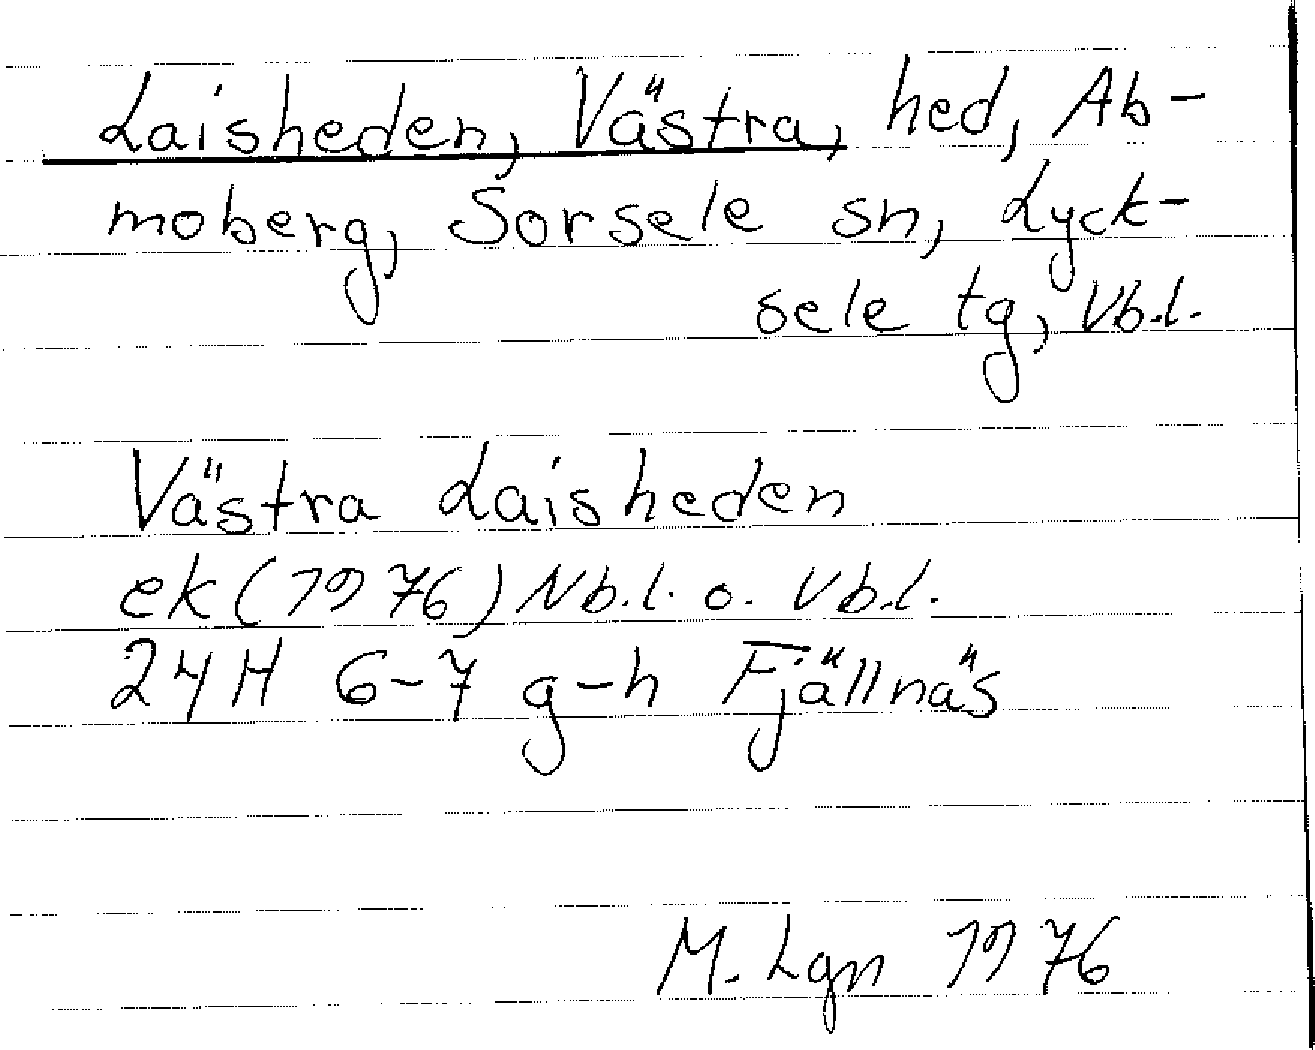 Laisheden, Västra, hed, Ab-
moberg, Sorsele sn, Lyck-
sele tg, Vb.l.
Västra Laisheden
ek (1976) Nb.l. o. Vb.l.
24H 6-7 g-h Fjällnäs
M. Lgn 1976